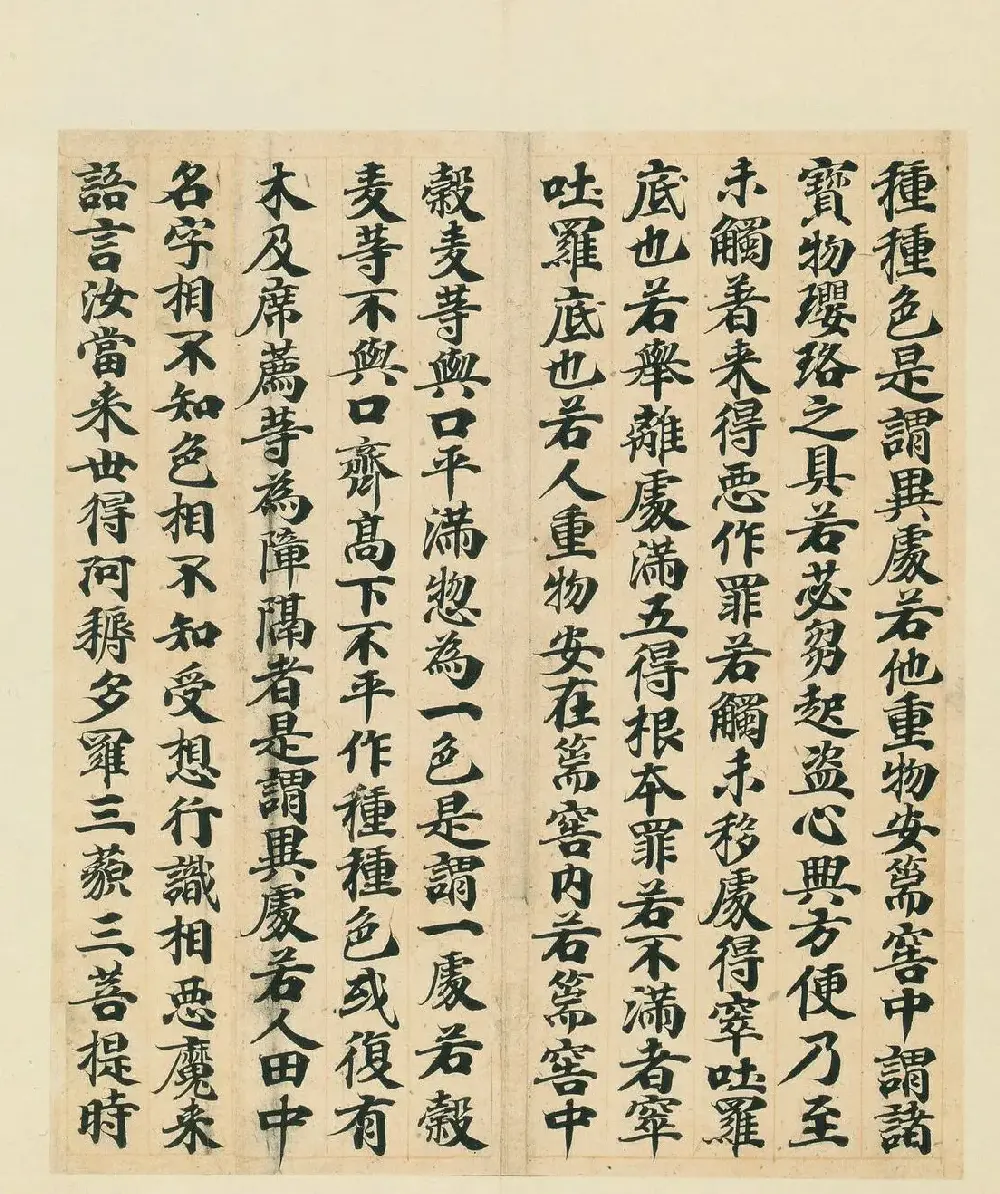 種種色是謂異處若他重物安篅窖中謂諸
寶物瓔珞之具若苾芻起盜心興方便乃至
未觸著来得悪作罪若觸未移處得窣吐羅
底也若舉離處滿五得根本罪若不滿者窣
吐羅底也若人重物安在篅窖内若篅窖中
穀麦等與口平滿惣為一色是謂一處若穀
麦等不與口齊高下不平作種種色或復有
木及席薦等為障隔者是謂異處若人田中
名字相不知色相不知受想行識相悪魔来
語言汝當来世得阿耨多羅三藐三菩提時